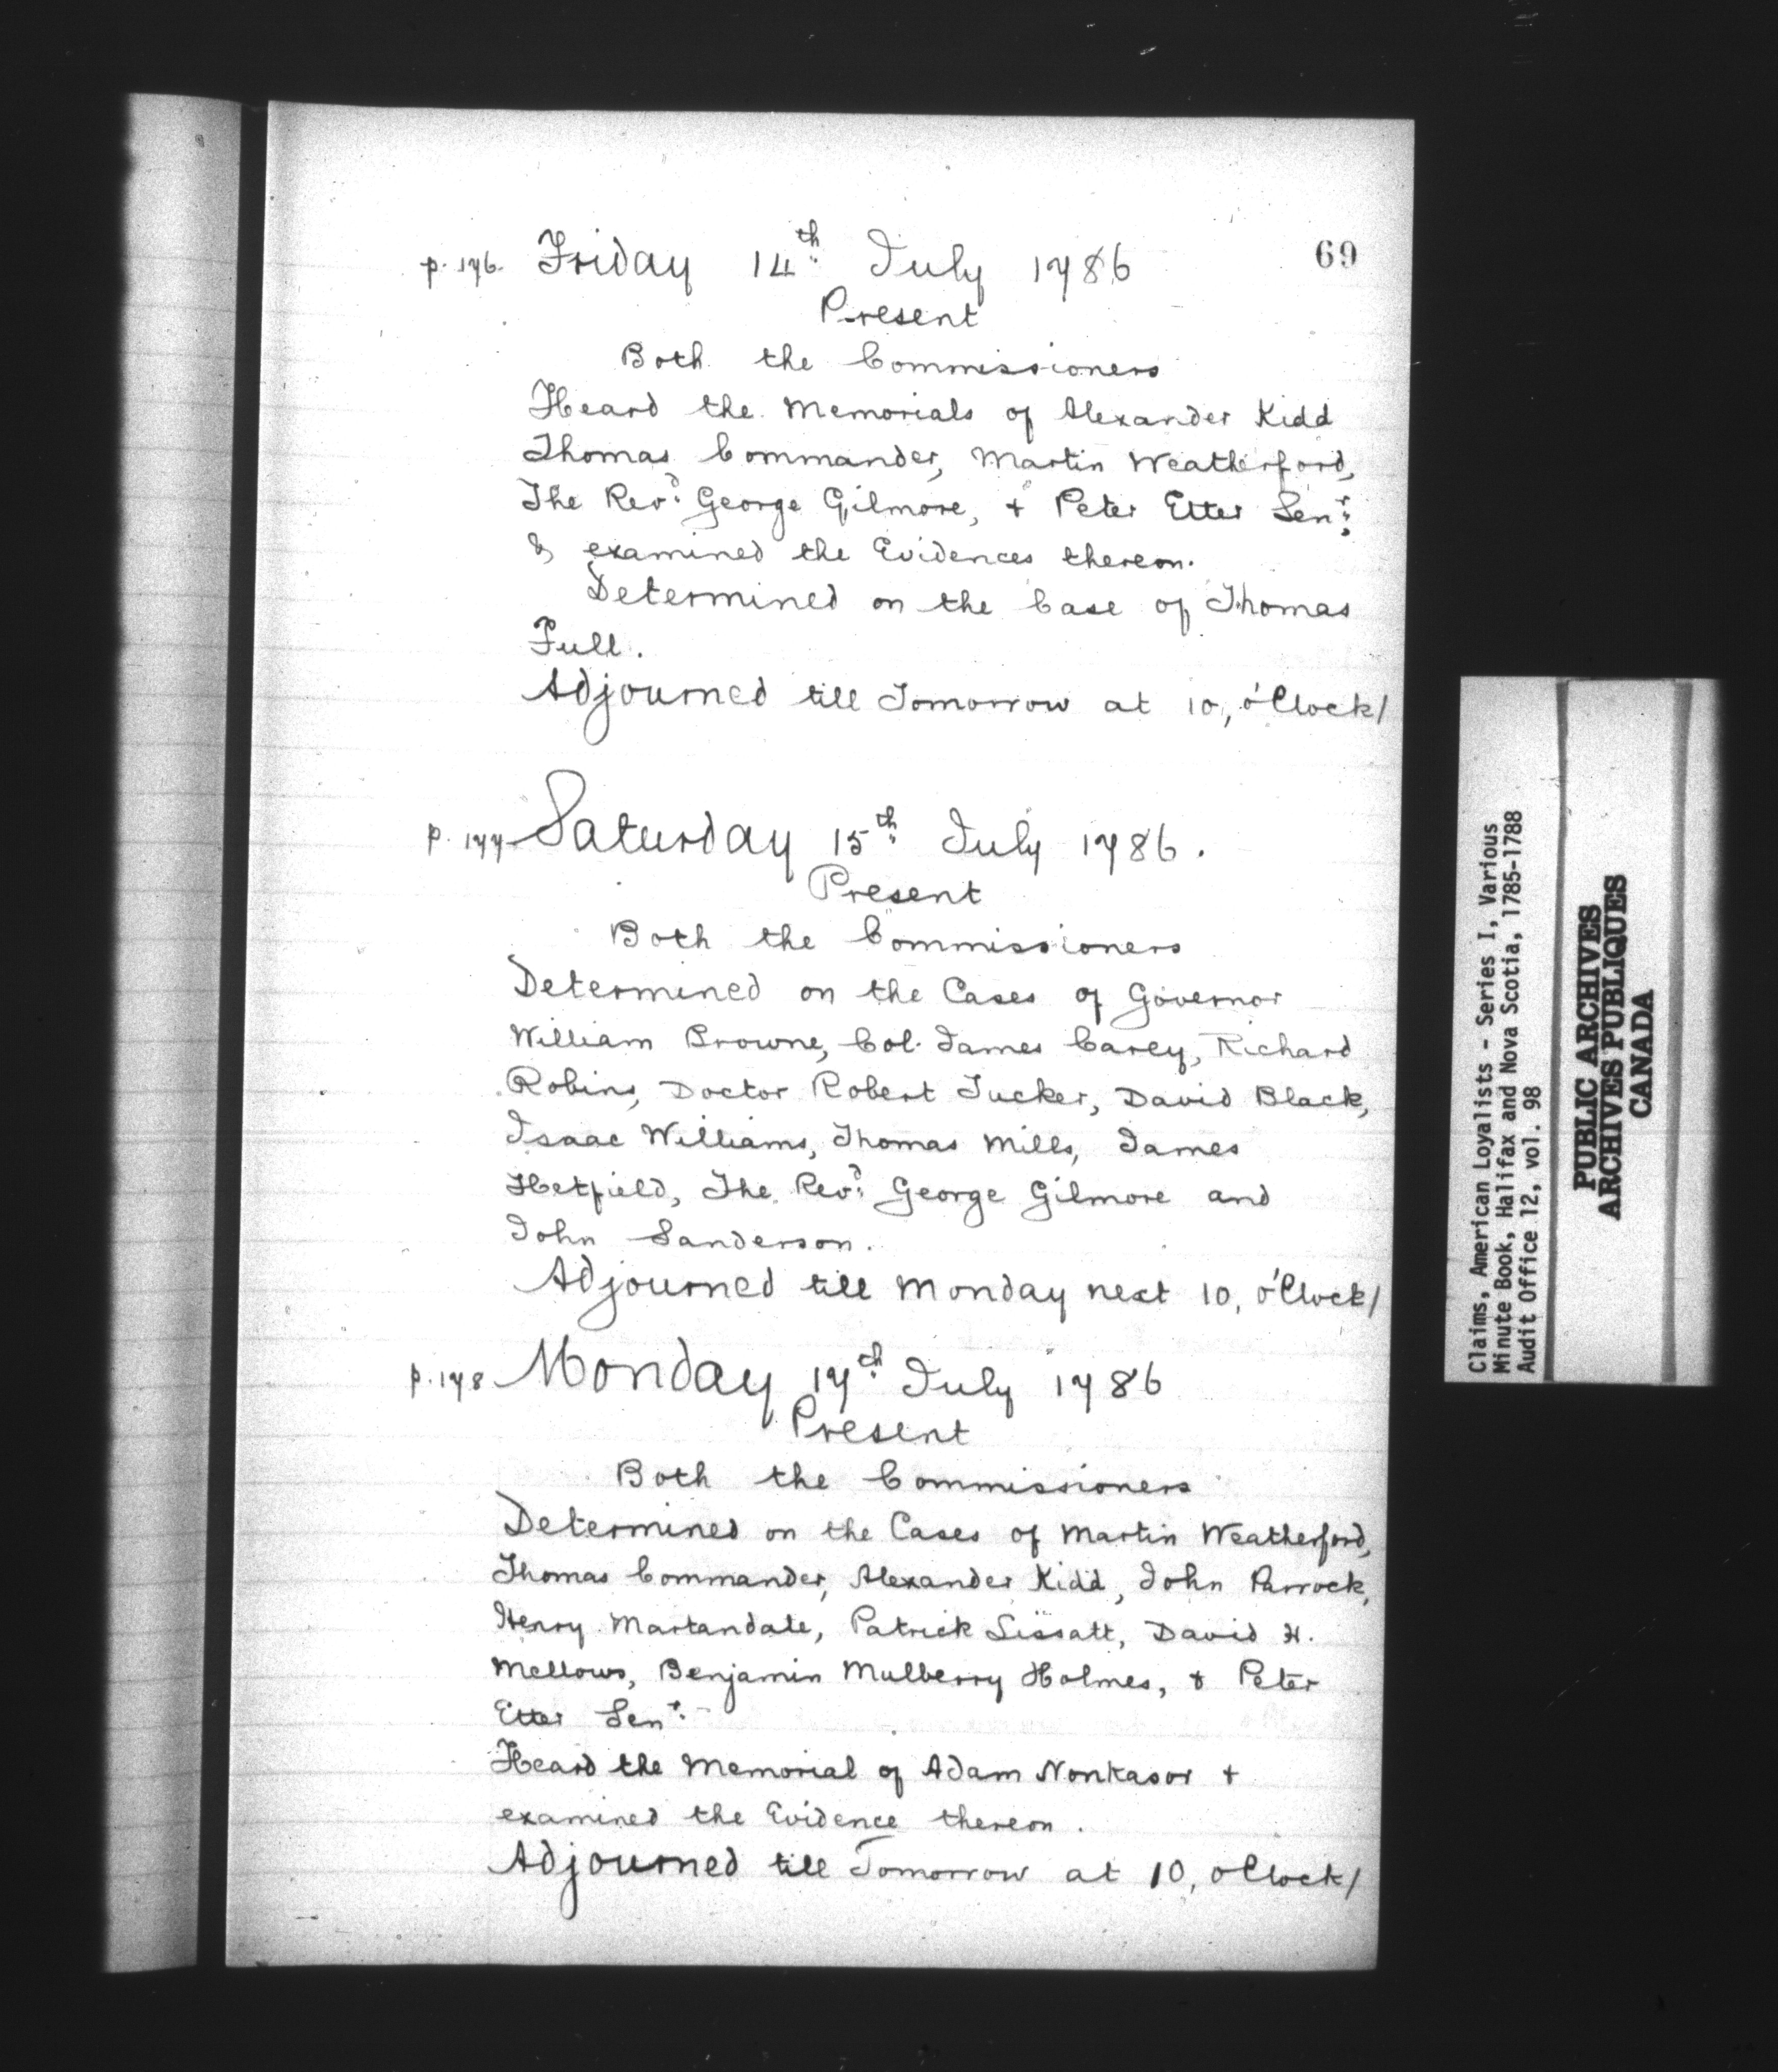 69
p. 176. Friday 14th July 1786
Present
Both the Commissioners
Heard the Memorials of Alexander Kidd
Thomas Commander, Martin Weatherford,
The Revd. George Gilmore, + Peter Etter Senr.;
& examined the Evidences thereon.
Determined on the Case of Thomas
Full.
Adjourned till Tomorrow at 10, o'Clock/
p. 177 Saturday 15th July 1786.
Present
Both the Commissioners
Determined on the Cases of Governor
William Browne, Col. James Carey, Richard
Robins, Doctor Robert Tucker, David Black,
Isaac Williams, Thomas Mills, James
Hetfield, The Revd. George Gilmore and
John Sanderson.
Adjourned till Monday next 10, o'Clock/
p. 178 Monday 17th July 1786
Present
Both the Commissioners
Determined on the Cases of Martin Weatherford,
Thomas Commander, Alexander Kidd, John Parrock,
Henry Martandale, Patrick Lissatt, David H.
Mellows, Benjamin Mulberry Holmes, & Peter
Etter Senr.
Heard the Memorial of Adam Nonkasor +
examined the Evidence thereon.
Adjourned till Tomorrow at 10, oClock/
Claims, American Loyalists - Series I, Various
Minute Book, Halifax and Nova Scotia, 1785-1788
Audit Office 12, vol. 98
PUBLIC ARCHIVES
ARCHIVES PUBLIQUES
CANADA